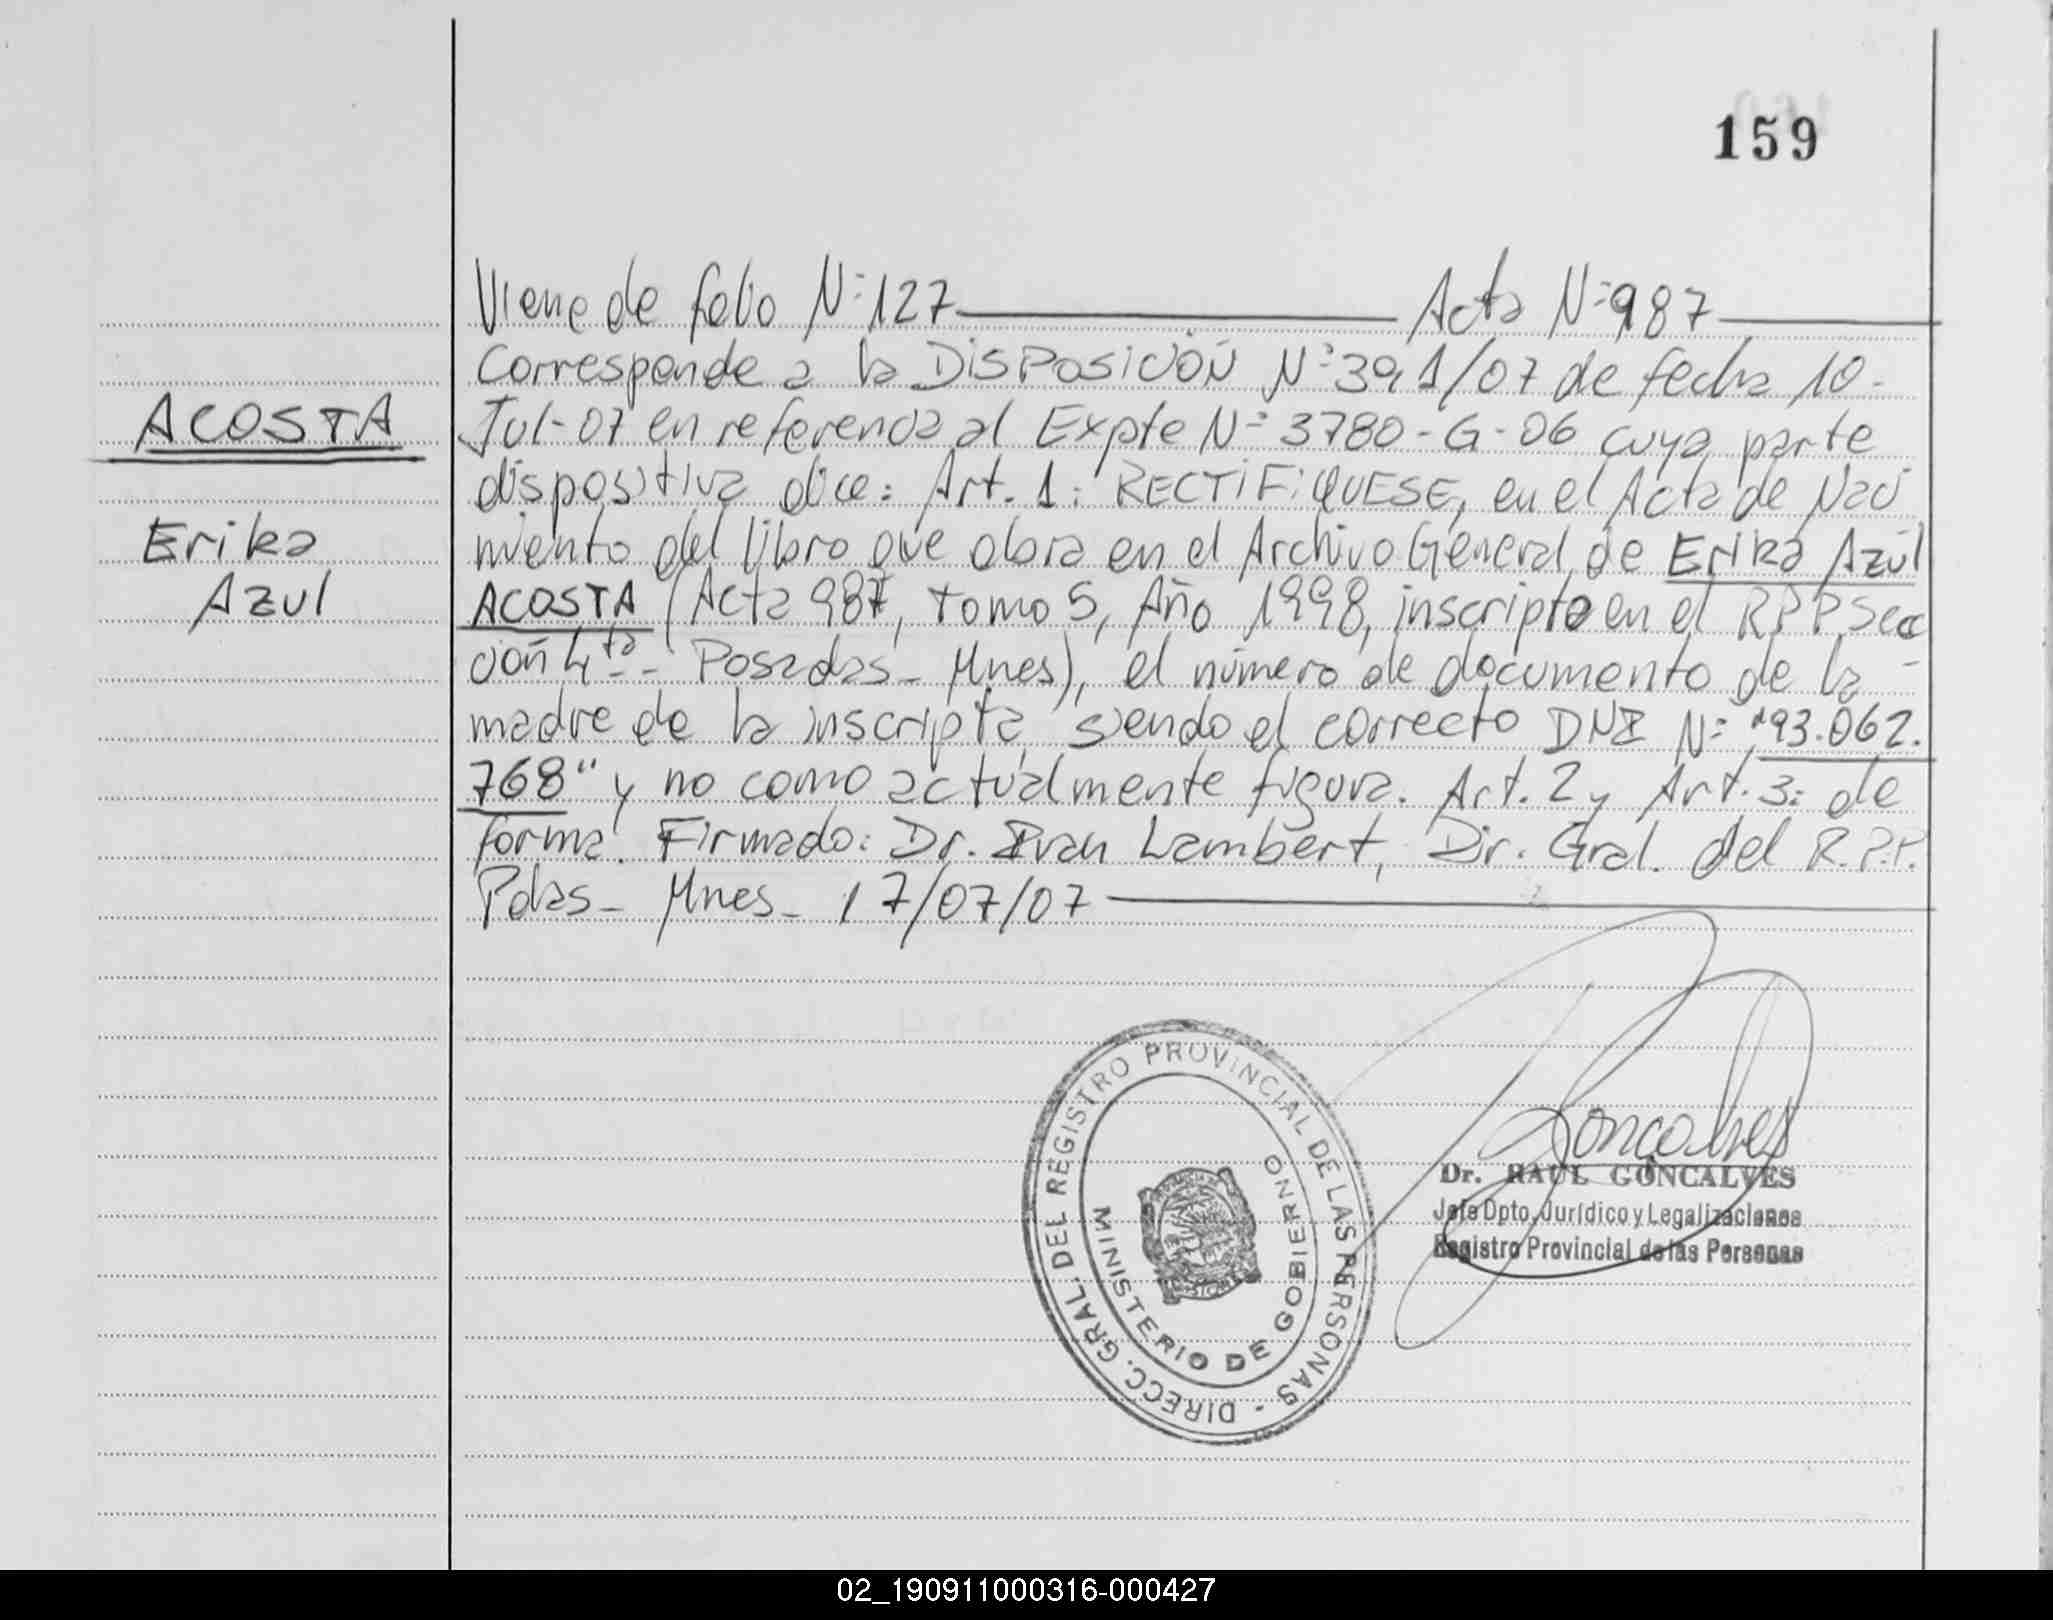 159
Viene de folio N° 127 Acta N° 987
Corresponde a la DISPOSICIÓN N° 391/07 de fecha 10-
Jul-07 en referencia al Expte N° 3780-G-06 cuya parte
dispositiva dice: Art. 1: RECTIFIQUESE, en el Acta de Naci
miento del libro que obra en el Archivo General de Erika Azul
ACOSTA (Acta 987, tomo 5, Año 1998, inscripto en el RPP Sec
ción 4ta - Posadas - Mnes), el número de documento de la -
madre de la inscripta, siendo el correcto DNI N° "93.062.
768" y no como actualmente figura. Art. 2 y Art. 3: de
forma. Firmado: Dr. Ivan Lambert, Dir. Gral. del R.P.P.
Pdas - Mnes - 17/07/07
ACOSTA
Erika
Azul
DIRECC. GRAL. DEL REGISTRO PROVINCIAL DE LAS PERSONAS -
MINISTERIO DE GOBIERNO
Goncalves
Dr. RAUL GONCALVES
Jefe Dpto. Jurídico y Legalizaciones
Registro Provincial de las Personas
02_190911000316-000427